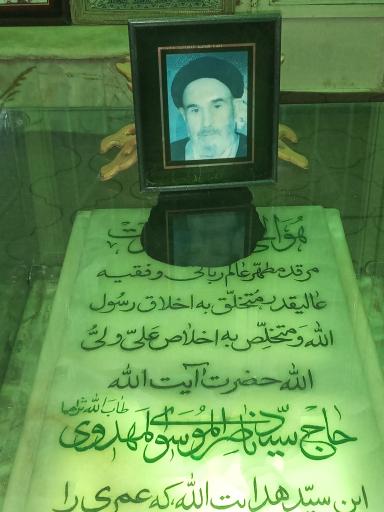 هو الحی
مرقد مطهر عالم ربانی و فقیه
عالیقدر متخلق به اخلاق رسول
الله و متخلص به اخلاص علی ولی
الله حضرت آیت الله
حاج سید ناصر الموسوی لمهدوی طاب الله ثراهما
ابن سید هدایت الله که عمری را